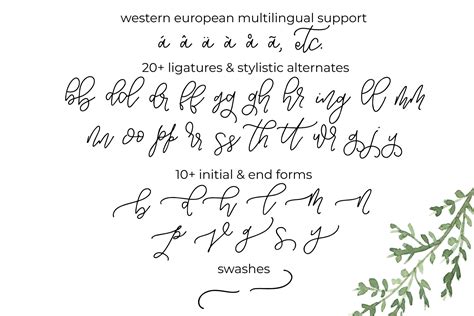 western european multilingual support
á â ä à å ã, etc.
20+ ligatures & stylistic alternates
bb dd dr ff gg gh hr ing ll mm
nn oo pp rr ss th tt wr g j y
10+ initial & end forms
b d h l m n
p v g s y
swashes